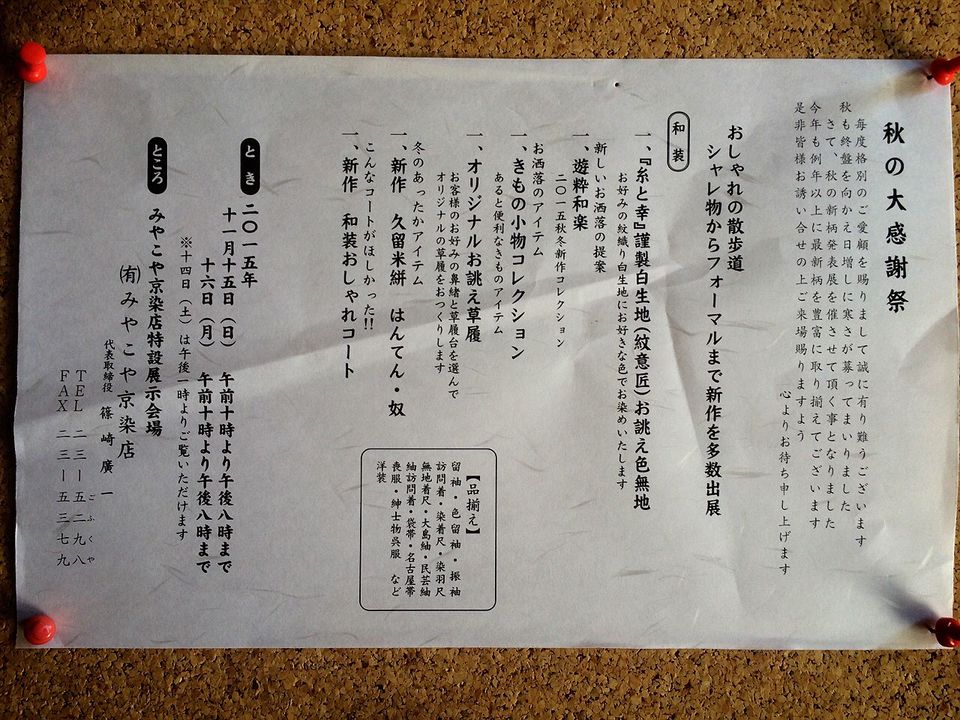 秋の大感謝祭
毎度格別のご愛顧を賜りまして誠に有り難うございます
秋も終盤を向かえ日増しに寒さが募ってまいりました
さて、秋の新柄発表展を催させて頂く事となりました
今年も例年以上に最新柄を豊富に取り揃えてございます
是非皆様お誘い合せの上ご来場賜りますよう
心よりお待ち申し上げます
おしゃれの散歩道
シャレ物からフォーマルまで新作を多数出展
和装
一、『糸と幸』謹製白生地(紋意匠)お誂え色無地
お好みの紋織り白生地にお好きな色でお染めいたします
新しいお洒落の提案
一、遊粋和楽
二〇一五秋冬新作コレクション
お洒落のアイテム
一、きもの小物コレクション
あると便利なきものアイテム
一、オリジナルお誂え草履
お客様のお好みの鼻緒と草履台を選んで
オリジナルの草履をおつくりします
冬のあったかアイテム
一、新作 久留米絣 はんてん・奴
こんなコートがほしかった!!
一、新作 和装おしゃれコート
【品揃え】
留袖・色留袖・振袖
訪問着・染着尺・染羽尺
無地着尺・大島紬・民芸紬
紬訪問着・袋帯・名古屋帯
喪服・紳士物呉服 など
洋装
とき 二〇一五年
十一月十五日(日) 午前十時より午後八時まで
十六日(月) 午前十時より午後八時まで
※十四日(土)は午後一時よりご覧いただけます
ところ みやこや京染店特設展示会場
㈲みやこや京染店
代表取締役 篠崎廣一
ごふくや
TEL 二三ー五二九八
FAX 二三ー五三七九